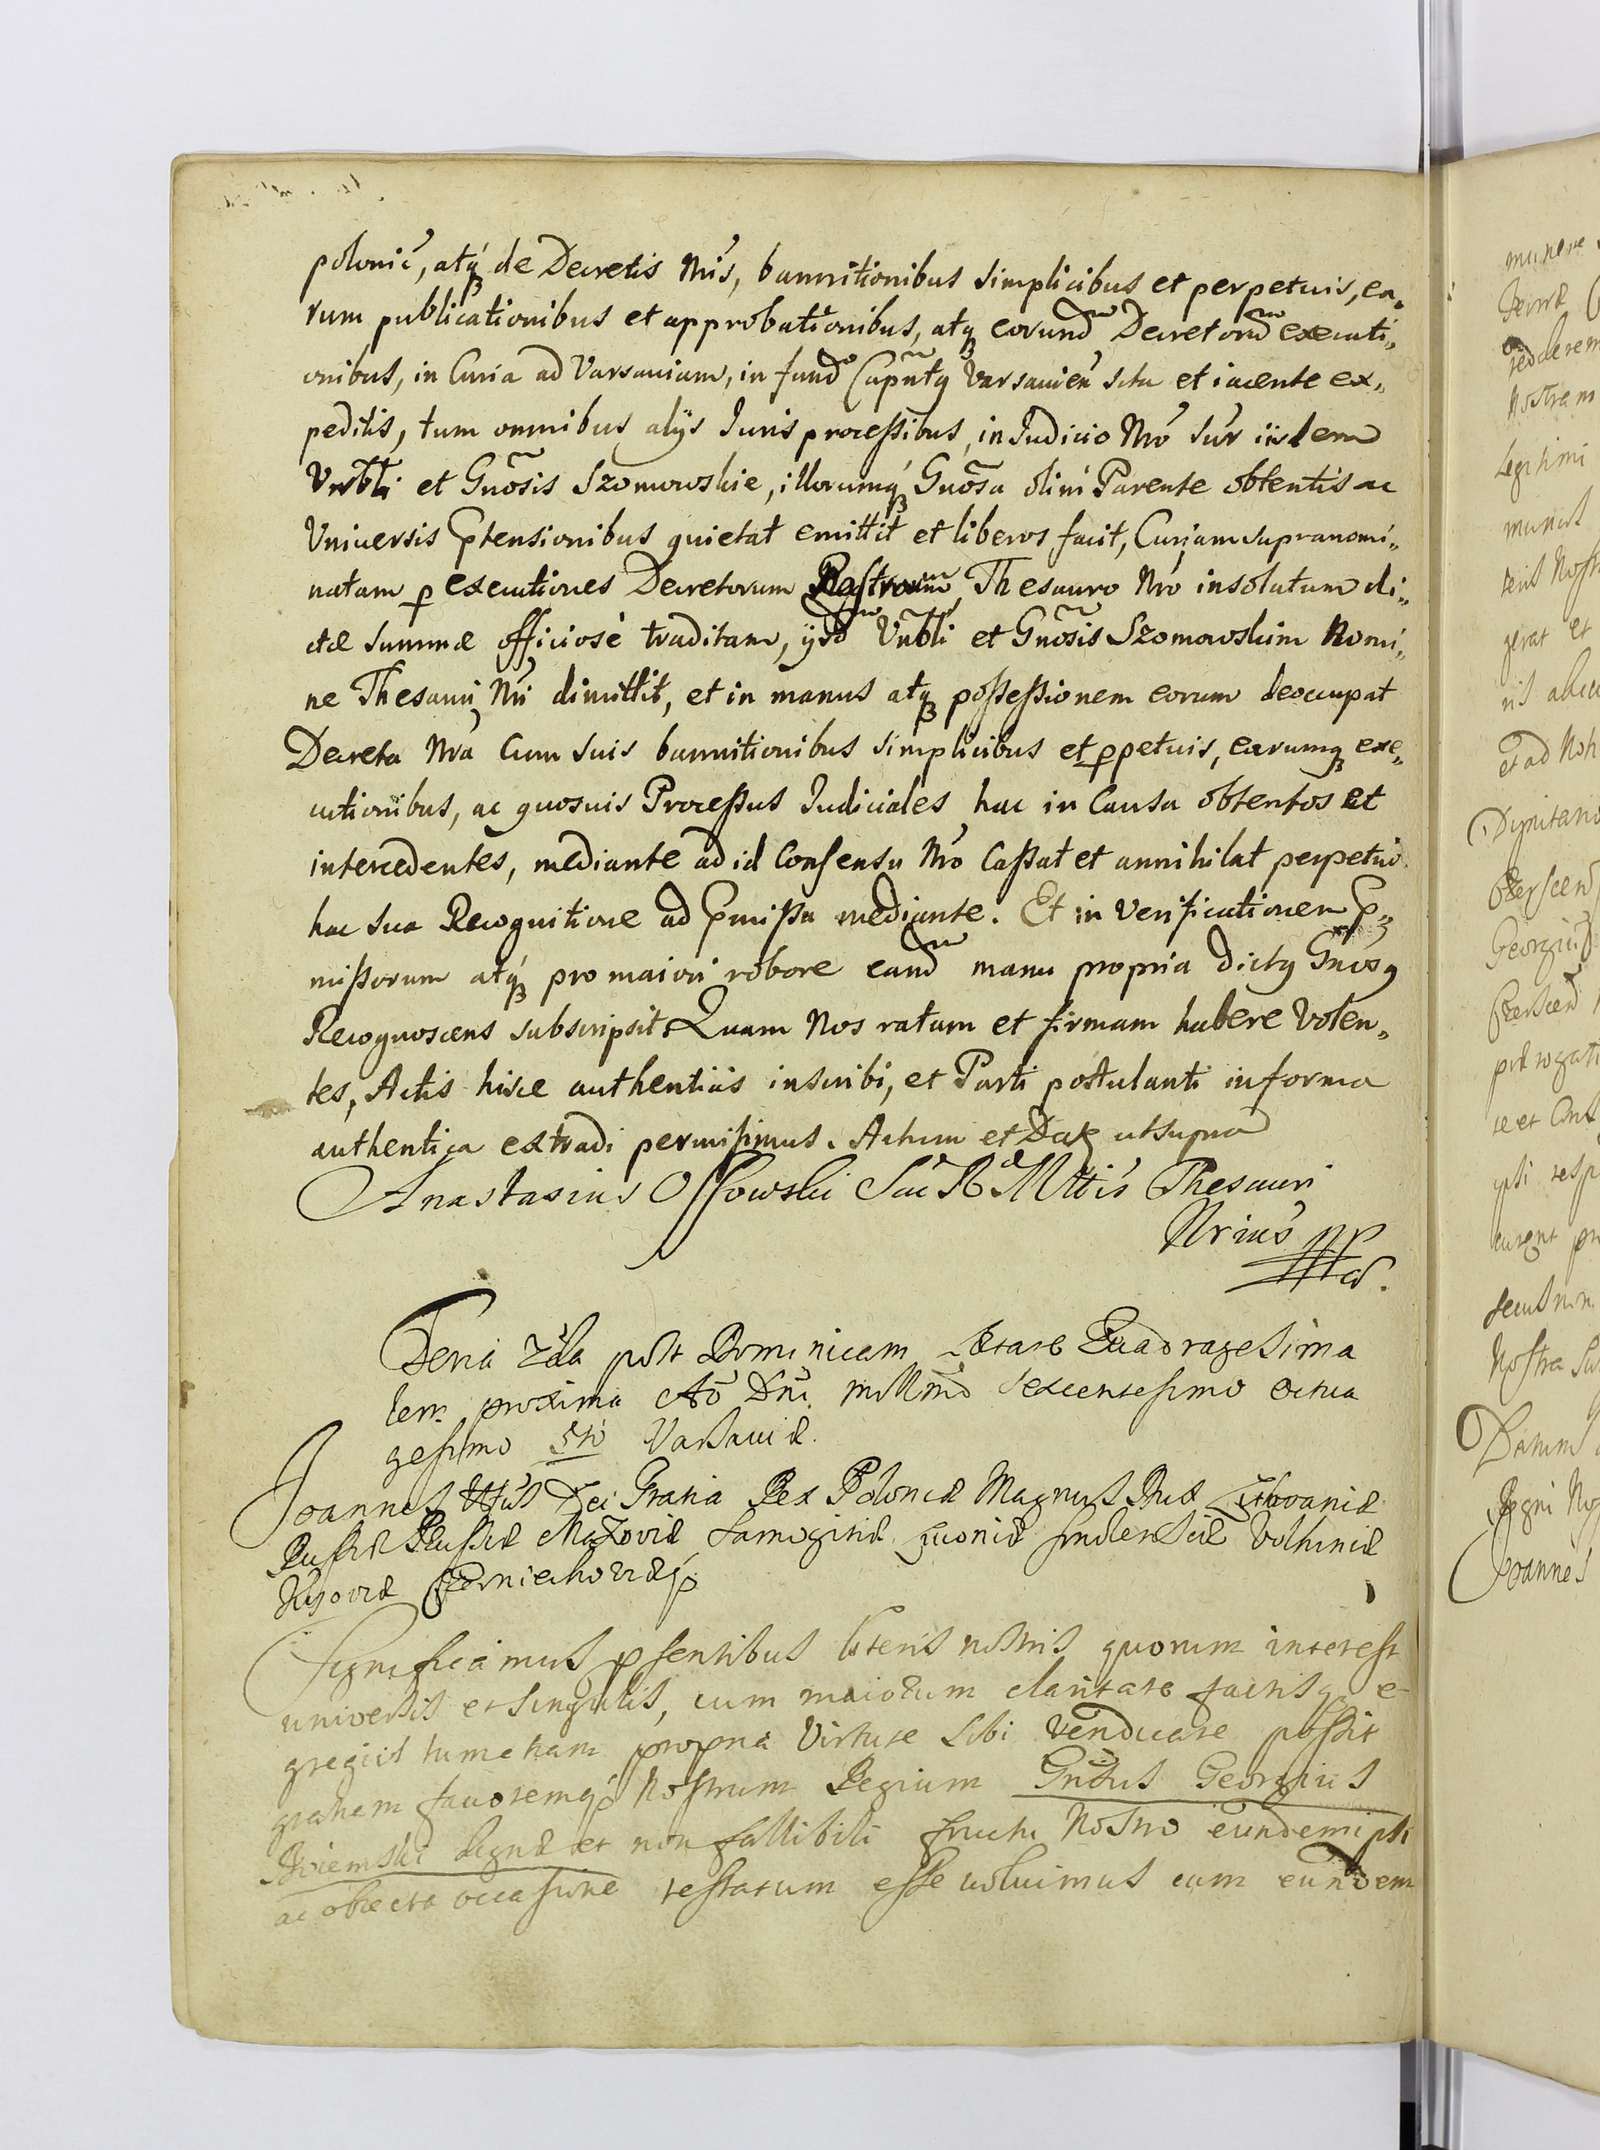 polonic, atq de Decretis Nris, bannitionibus simplicibus et perpetuis, ea„
rum publicationibus et approbationibus, atq eorund Decretoru executi„
onibus, in Curia ad Varsaviam, in fund Varsavien sita et iacente ex„
peditis, tum omnibus alÿs Iuris processibus, in Iudicio Nro sur iisdem
Vrbli et Gnosis Szomowskie, illorumq Gnosa olim Parente obtentis ac
Universis Ptensionibus quietat emittit et liberos facit, Curiam supranomi„
natam p executiones Decretorum Nostrorum Thesauro Nro insolutum di„
ctæ summæ officiosè traditam, ysd Unbli et Gnosis Szomowskim Nomi„
ne Thesauri Nri dimittit, et in manus atq possessionem eorum deoccupat
Decreta Nra cum suis bannitionibus simplicibus et ppetuis, earumq exe„
cutionibus, ac quosuis Processus Iudiciales hac in Causa obtentos et
intercedentes, mediante ad id Consensu Nro Cassat et annihilat perpetuò
hac sua Recognitione ad Pmissa mediante. Et in verificationem P„
missorum atq pro maiori robore eand manu propria dictq Gnosq
Recognoscens subscripsit. Quam Nos ratam et firmam habere Volen„
tes, Actis hisce authenticis inscribi, et Parti postulanti in forma
authentica extradi permisimus. Actum et Dat ut supra
Anastasius Ossowski Sac R Mttis Thesauri
Nrius mp
Feria 2da post Dominicam Lætare Quadragesima
lem proxima Ao Dni millmo sexcentesimo octua
gesimo 5to Varsaviæ
Joannes IIItius Dei Gratia Rex Poloniæ Magnus Dux Lithvaniæ
Russiæ Prussiæ Mazoviæ Samogitiæ Livoniæ Smolensciæ Volhiniæ
Kijoviæ Czerniechoviæq
Significamus psentibus literis nostris quorum interest
universis et singulis, cum maiorum claritate factisq e-
gregiis tum etiam propria Virtute sibi vendicare possit
gratiam favoremq Nostrum Regium Gnosus Georgius
digne et non fallibili fructu Nostro eundem ipsi
ac obiecta occasione testatum esse voluimus cum eundem